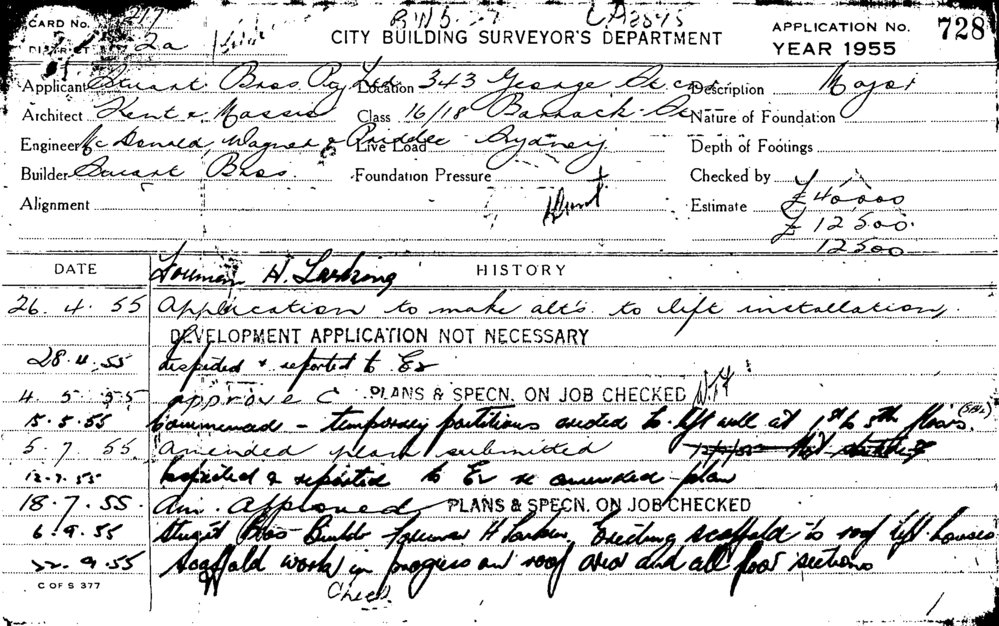 CARD No. 217
CITY BUILDING SURVEYOR'S DEPARTMENT
APPLICATION No. 728
YEAR 1955
DISTRICT 2a
Applicant Stuart Bros Pty Ltd Location 343 George St cnr Description Major
Architect Kent & Massie Class 16/18 Barrack St Nature of Foundation
Engineer McDonald, Wagner & Priddle Live Load Sydney Depth of Footings
Builder Stuart Bros. Foundation Pressure Checked by
Alignment Estimate £40000
£12500.
12500
DATE HISTORY
Foreman H. Larking
26.4.55 Application to make alt's. to lift installation.
DEVELOPMENT APPLICATION NOT NECESSARY
28.4.55 Inspected & reported to Er
4.5.55 approve C PLANS & SPECN. ON JOB CHECKED
15.5.55 Commenced - temporary partitions erected to lift well at 1st to 5th floors.
5.7.55 Amended plan submitted
12.7.55 Inspected & reported to Er re amended plan
18.7.55. Am. Approved PLANS & SPECN. ON JOB CHECKED
6.9.55 Stuart Bros Builder Foreman H Larkin, Erecting scaffold to roof lift houses
22.9.55 Scaffold work in progress on roof area and all floor sections
C OF S 377
Check